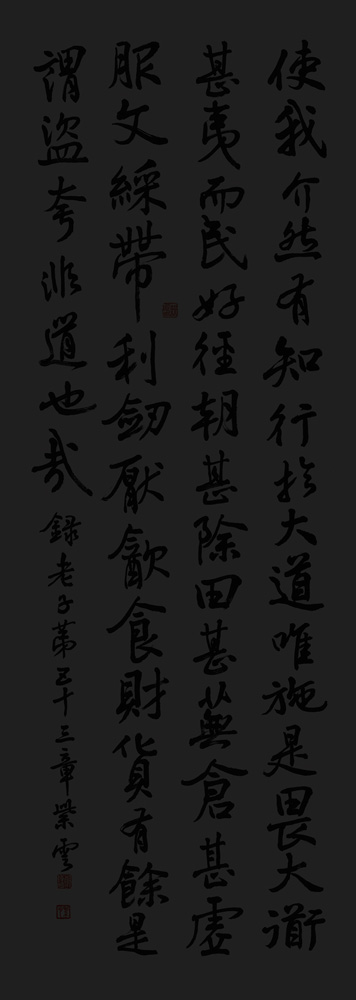 使我介然有知行於大道唯施是畏大道
甚夷而民好徑朝甚除田甚蕪倉甚虛
服文綵帶利劒厭飲食財貨有餘是
謂盜夸非道也哉錄老子第五十三章紫雲